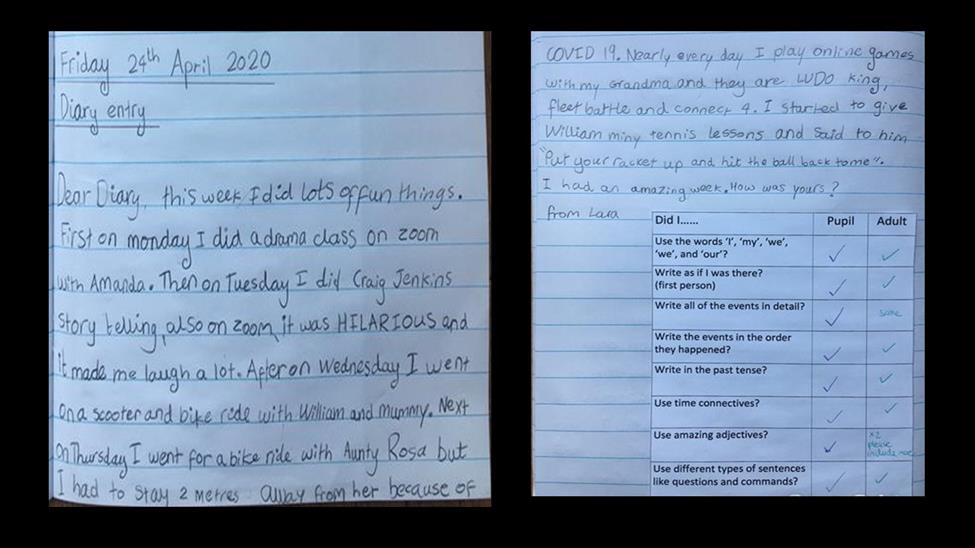 Friday 24th April 2020
Diary entry
Dear Diary, this week I did lots of fun things.
First on monday I did a drama class on zoom
with Amanda. Then on Tuesday I did Craig Jenkins
story telling, also on zoom, it was HILARIOUS and
it made me laugh a lot. After on Wednesday I went
on a scooter and bike ride with William and mummy. Next
on Thursday I went for a bike ride with Aunty Rosa but
I had to stay 2 metres away from her because of
COVID 19. Nearly every day I play online games
with my grandma and they are LUDO king,
fleet battle and connect 4. I started to give
William miny tennis lessons and said to him
"Put your racket up and hit the ball back to me".
I had an amazing week. How was yours?
from Lara
Did I...... Pupil Adult
Use the words ‘I’, ‘my’, ‘we’, ✓ ✓
‘we’, and ‘our’?
Write as if I was there? ✓ ✓
(first person)
Write all of the events in detail? ✓ some
Write the events in the order ✓ ✓
they happened?
Write in the past tense? ✓ ✓
Use time connectives? ✓ ✓
Use amazing adjectives? ✓ x2
please
include more
Use different types of sentences ✓ ✓
like questions and commands?